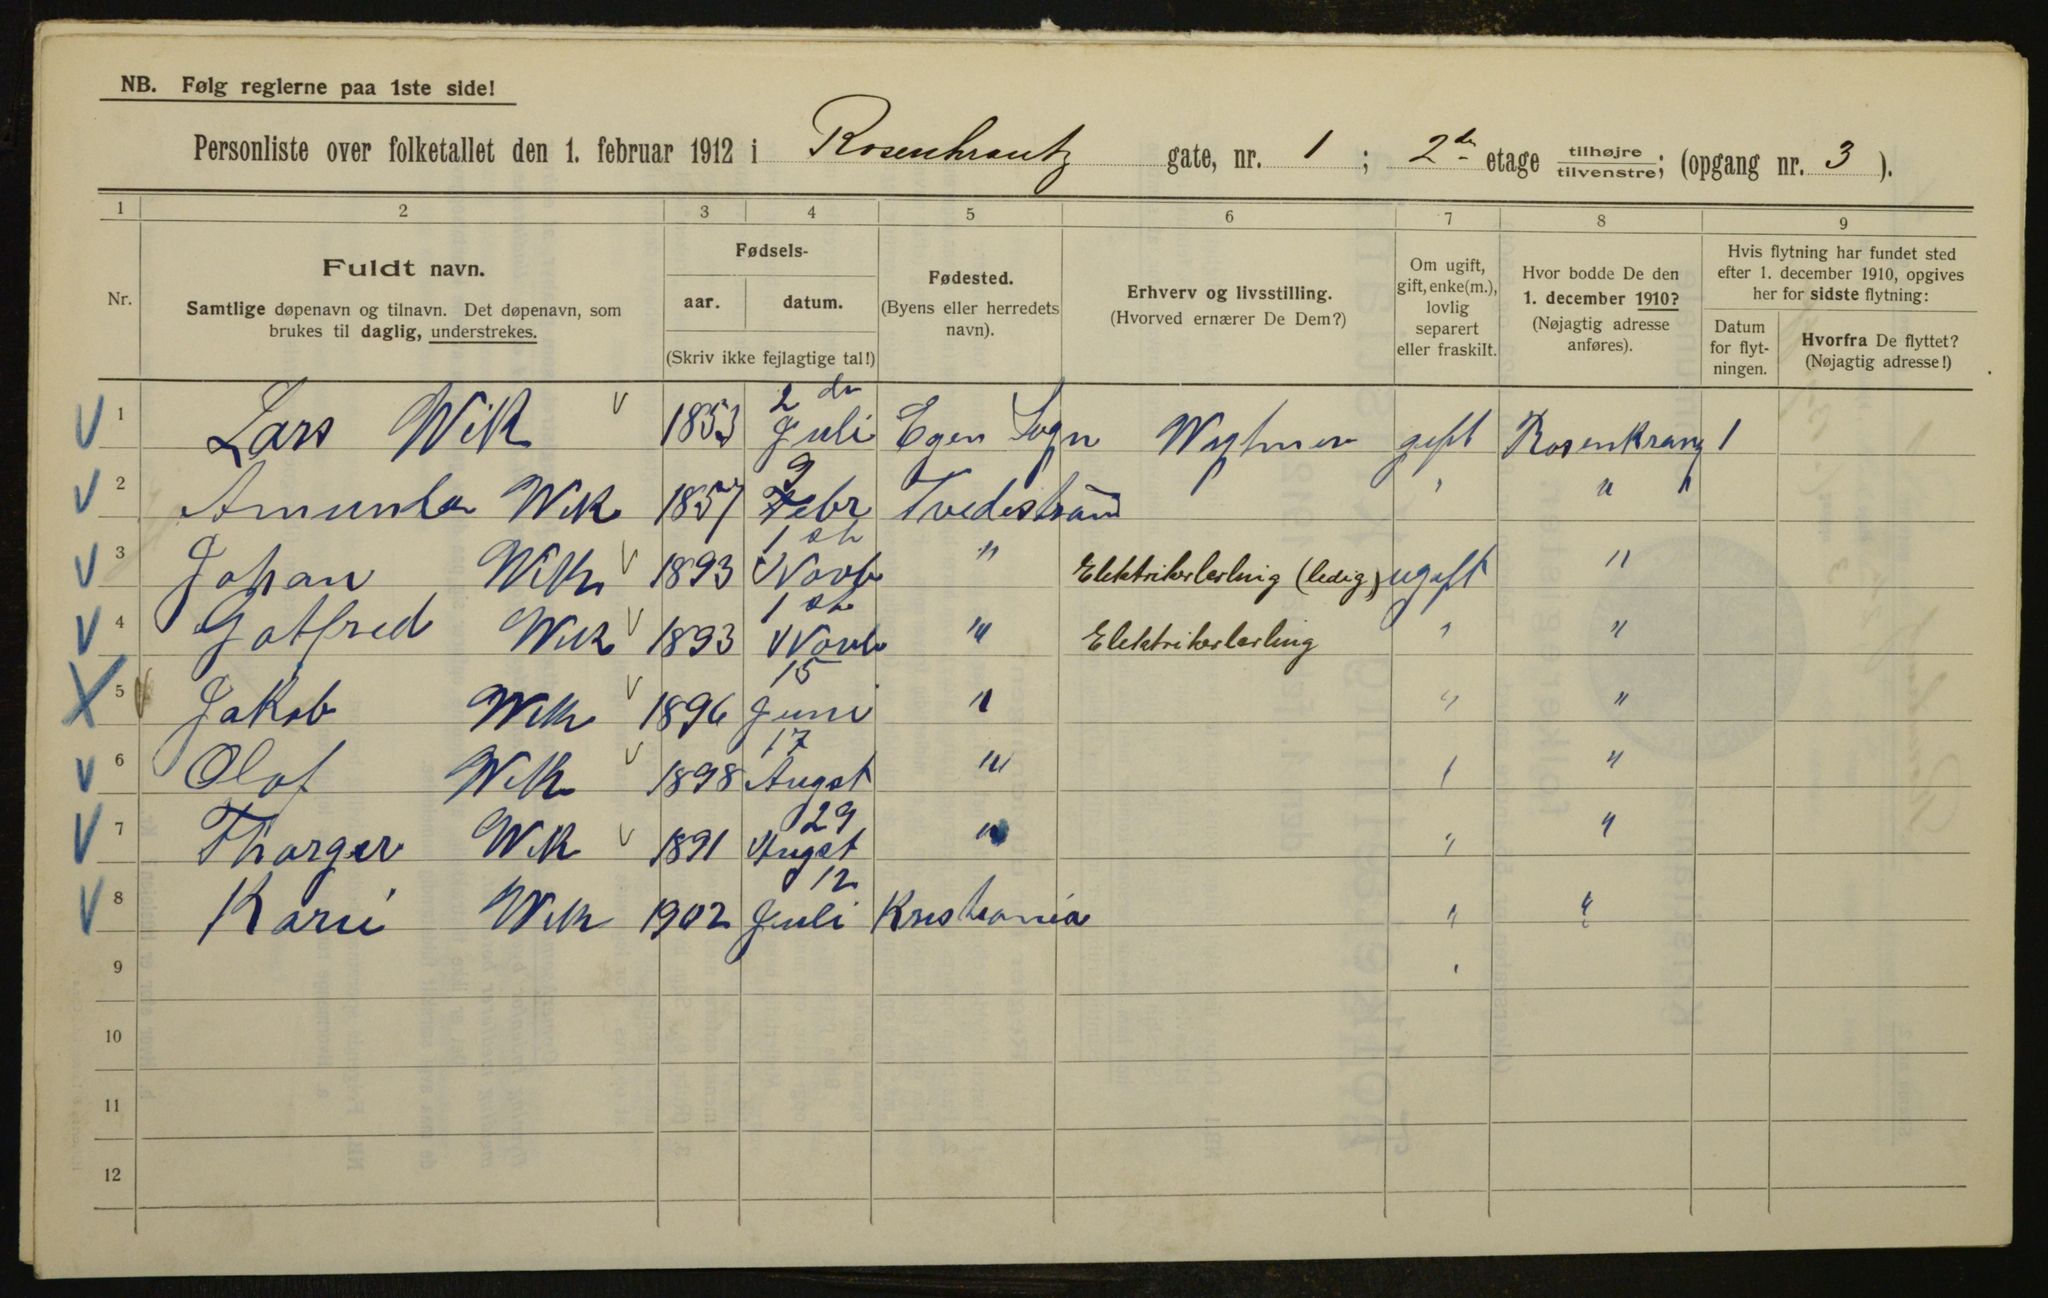 NB. Følg reglerne paa 1ste side!
Personliste over folketallet den 1. februar 1912 i Rosenkrantz gate, nr. 1 ; 2den etage tilhøjre / tilvenstre; (opgang nr. 3 ).
1 2 3 4 5 6 7 8 9
Nr.
Fuldt navn.
Samtlige døpenavn og tilnavn. Det døpenavn, som
brukes til daglig, understrekes.
Fødsels-
aar. datum.
(Skriv ikke fejlagtige tal!)
Fødested.
(Byens eller herredets
navn).
Erhverv og livsstilling.
(Hvorved ernærer De Dem?)
Om ugift,
gift, enke(m.),
lovlig
separert
eller fraskilt.
Hvor bodde De den
1. december 1910?
(Nøjagtig adresse
anføres).
Hvis flytning har fundet sted
efter 1. december 1910, opgives
her for sidste flytning:
Datum
for flyt-
ningen.
Hvorfra De flyttet?
(Nøjagtig adresse!)
1 Lars Wik 1853 2 Juli Sogn gift Rosenkranz 1
2 Amunda Wik 1857 9 Febr Tvedestrand " "
3 Johan Wik 1893 1st Novb " Elektrikerlærling (ledig) ugift "
4 Gotfred Wik 1893 1st Novb " Elektrikerlærling " "
5 Jakob Wik 1896 15 Juni " " "
6 Olaf Wik 1898 17 Augst " " "
7 Thorger Wik 1891 29 Augst " " "
8 Kari Wik 1902 12 Juli Kristiania " "
9
10
11
12